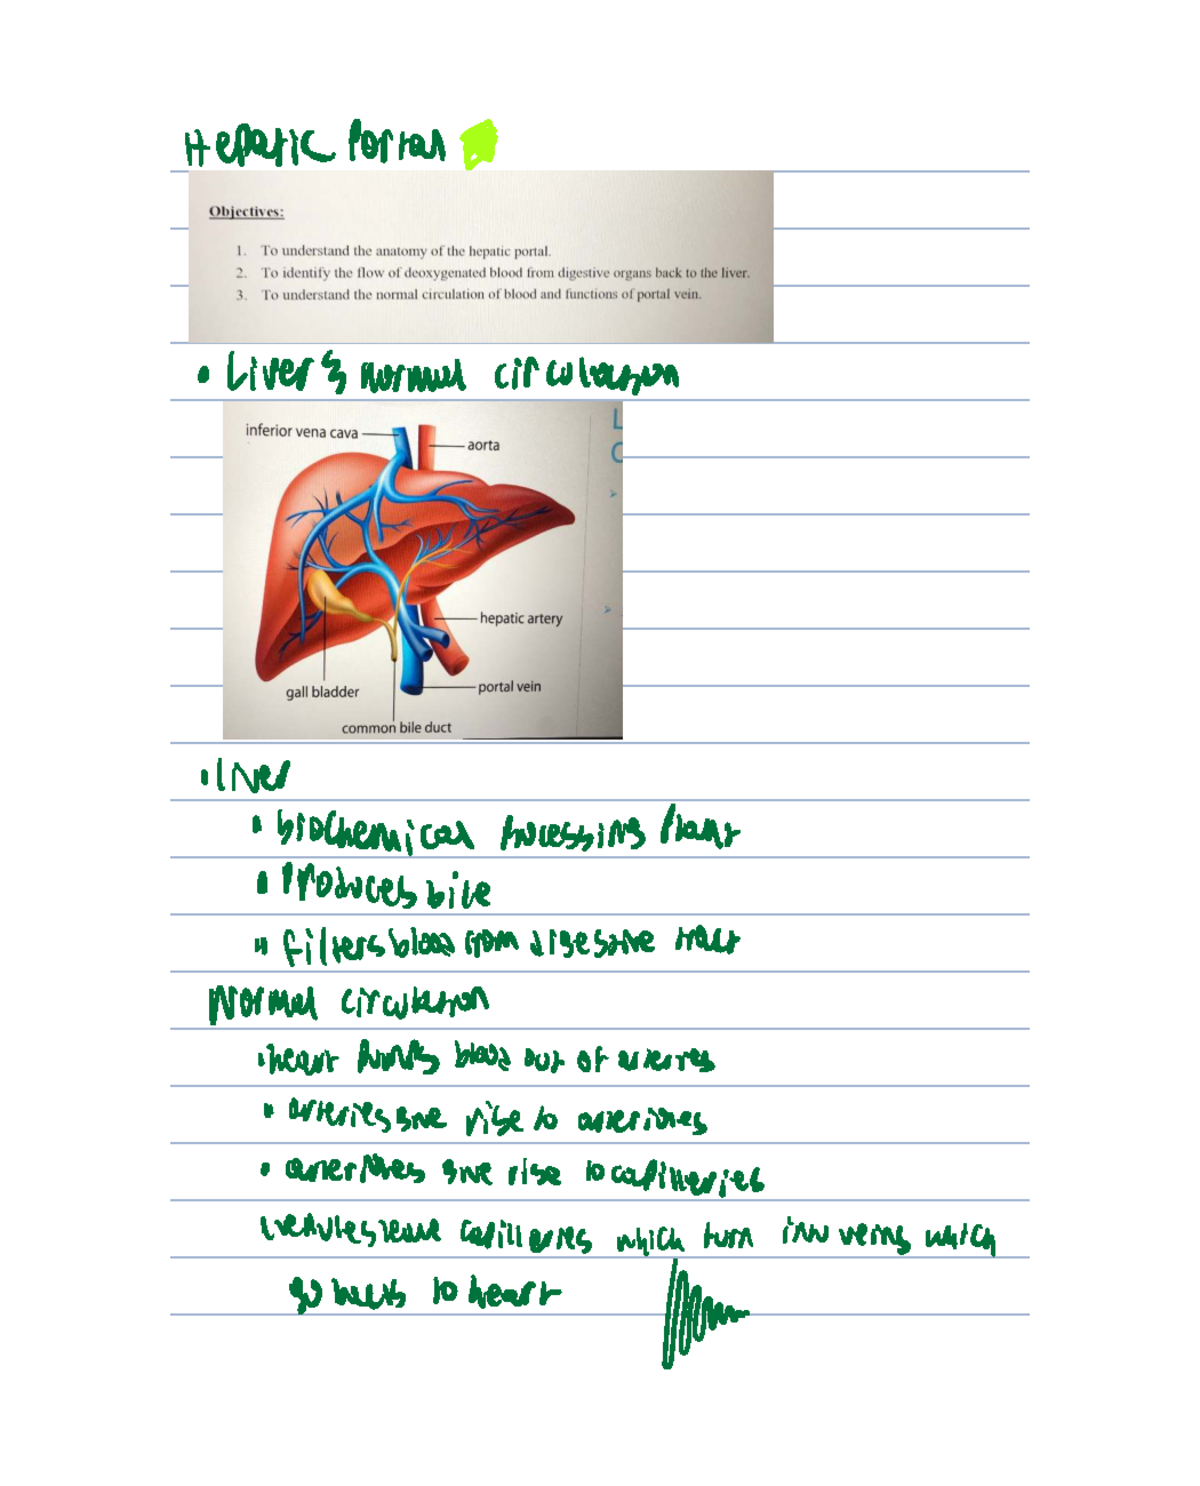 Hepatic Portal
Objectives:
1. To understand the anatomy of the hepatic portal.
2. To identify the flow of deoxygenated blood from digestive organs back to the liver.
3. To understand the normal circulation of blood and functions of portal vein.
• Liver & normal circulation
inferior vena cava
aorta
hepatic artery
portal vein
gall bladder
common bile duct
• liver
• biochemical processing plant
• Produces bile
• filters blood from digestive tract
Normal circulation
• heart pumps blood out of arteries
• arteries give rise to arterioles
• arterioles give rise to capilleries
leave capilleries which turn into veins which
go back to heart